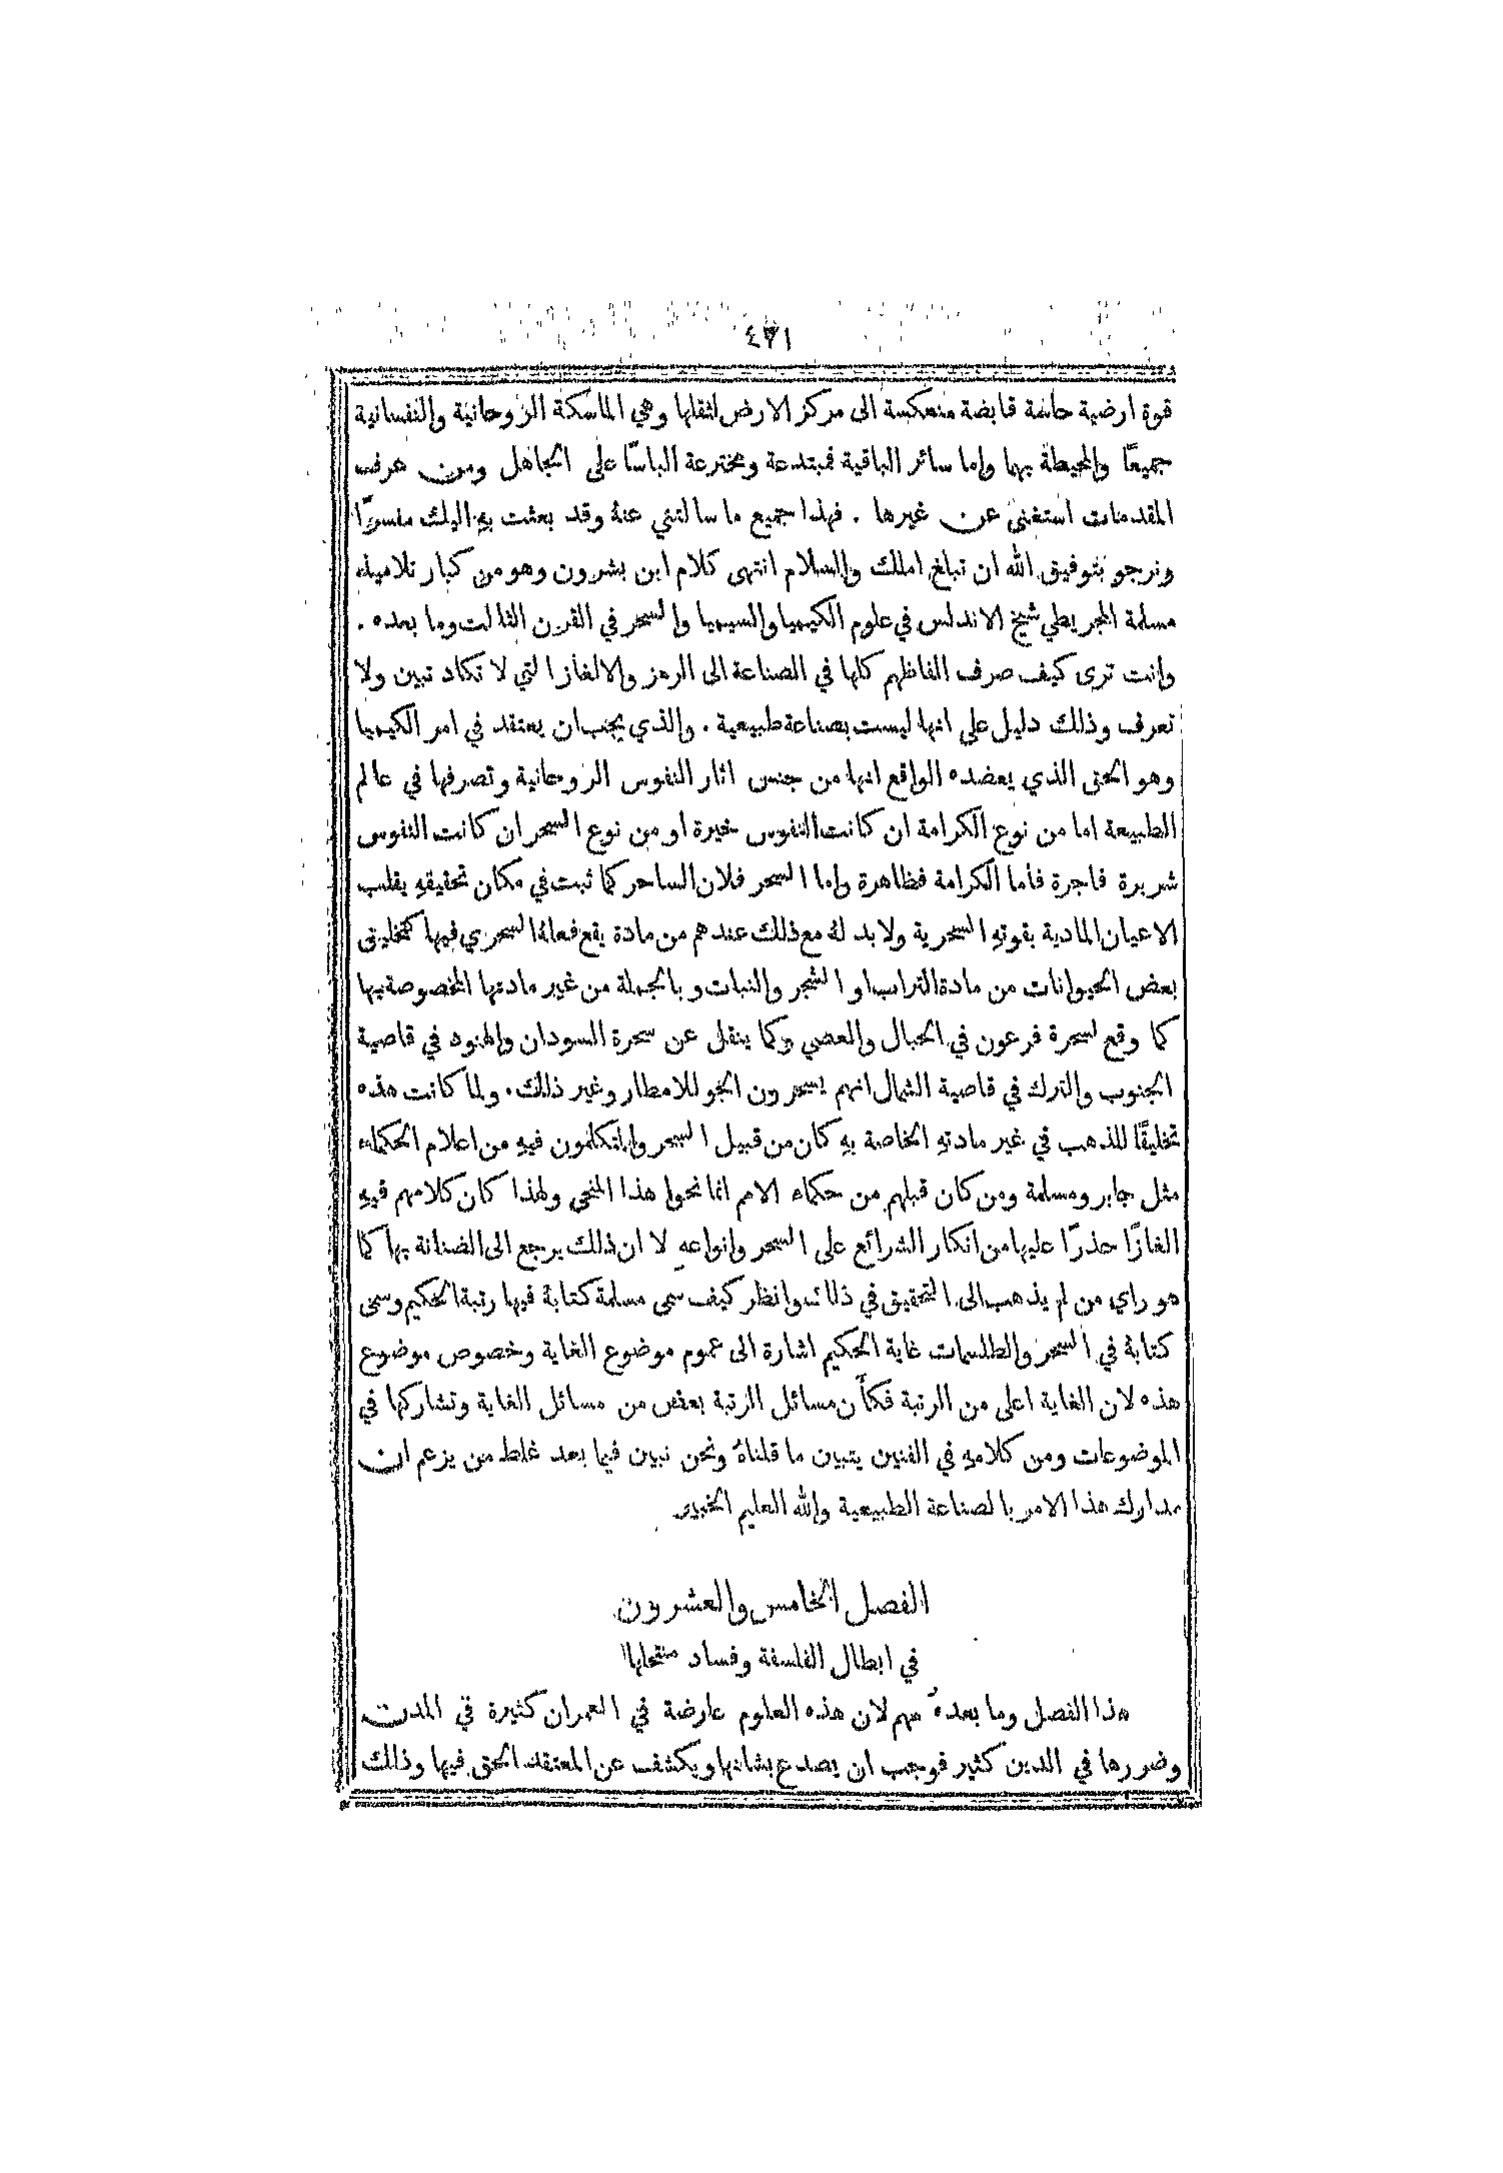 ٤٧١
قوة ارضية حاسة قابضة منعكسة الى مركز الارض لثقلها وهي الماسكة الروحانية والنفسانية
جميعًا والمحيطة بهما واما سائر الباقية فمبتدعة ومخترعة الباسًا على الجاهل ومن عرف
المقدمات استغنى عن غيرها . فهذا جميع ما سالتني عنهُ وقد بعثت بهِ اليك مفسرًا
ونرجو بتوفيق الله ان تبلغ املك والسلام انتهى كلام ابن بشرون وهو من كبار تلاميذ
مسلمة المجريطي شيخ الاندلس في علوم الكيميا والسيميا والسحر في القرن الثالث وما بعده .
وانت ترى كيف صرف الفاظهم كلها في الصناعة الى الرمز والالغاز التي لا تكاد تبين ولا
تعرف وذلك دليل على انها ليست بصناعة طبيعية . والذي يجب ان يعتقد في امر الكيميا
وهو الحق الذي يعضده الواقع انها من جنس اثار النفوس الروحانية وتصرفها في عالم
الطبيعة اما من نوع الكرامة ان كانت النفوس خيرة او من نوع السحر ان كانت النفوس
شريرة فاجرة فأما الكرامة فظاهرة واما السحر فلان الساحر كما ثبت في مكان تحقيقهِ يقلب
الاعيان المادية بقوتهِ السحرية ولا بد لهُ مع ذلك عندهم من مادة يقع فعلهُ السحري فيها كتخليق
بعض الحيوانات من مادة التراب او الشجر والنبات وبالجملة من غير مادتها المخصوصة بها
كما وقع لسحرة فرعون في الحبال والعصي وكما ينقل عن سحرة السودان والهنود في قاصية
الجنوب والترك في قاصية الشمال انهم يسحرون الجو للامطار وغير ذلك . ولما كانت هذه
تخليقًا للذهب في غير مادتهِ الخاصة بهِ كان من قبيل السحر والمتكلمون فيهِ من اعلام الحكماء
مثل جابر ومسلمة ومن كان قبلهم من حكماء الامم انما نحوا هذا المنحى ولهذا كان كلامهم فيهِ
الغازًا حذرًا عليها من انكار الشرائع على السحر وانواعهِ لا ان ذلك يرجع الى الضنانة بها كما
هو راي من لم يذهب الى التحقيق في ذلك وانظر كيف سمى مسلمة كتابهُ فيها رتبة الحكيم وسمى
كتابهُ في السحر والطلسمات غاية الحكيم اشارة الى عموم موضوع الغاية وخصوص موضوع
هذه لان الغاية اعلى من الرتبة فكأن مسائل الرتبة بعض من مسائل الغاية وتشاركها في
الموضوعات ومن كلامهِ في الفنين يتبين ما قلناهُ ونحن نبين فيما بعد غلط من يزعم ان
مدارك هذا الامر بالصناعة الطبيعية والله العليم الخبير
الفصل الخامس والعشرون
في ابطال الفلسفة وفساد منتحلها
هذا الفصل وما بعدهُ مهم لان هذه العلوم عارضة في العمران كثيرة في المدن
وضررها في الدين كثير فوجب ان يصدع بشانها ويكشف عن المعتقد الحق فيها وذلك